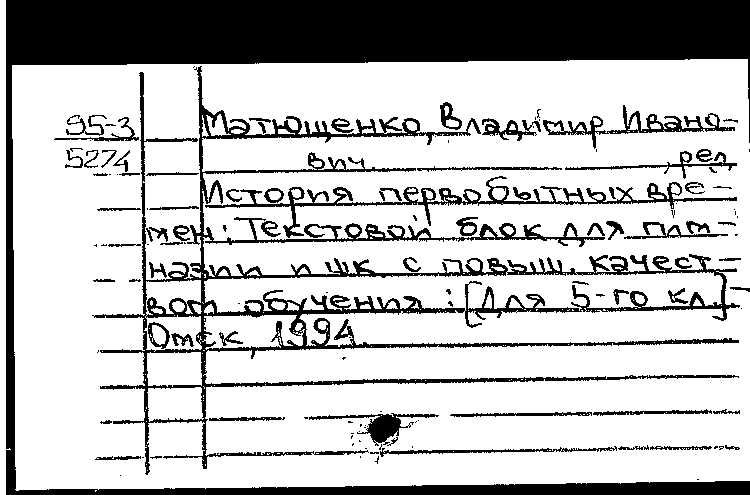 95-3 Матющенко, Владимир Ивано-
5274 вич , ред.
История первобытных вре-
мен: Текстовой блок для гим-
назии и шк. с повыш. качест-
вом обучения : [Для 5-го кл.] -
Омск, 1994.